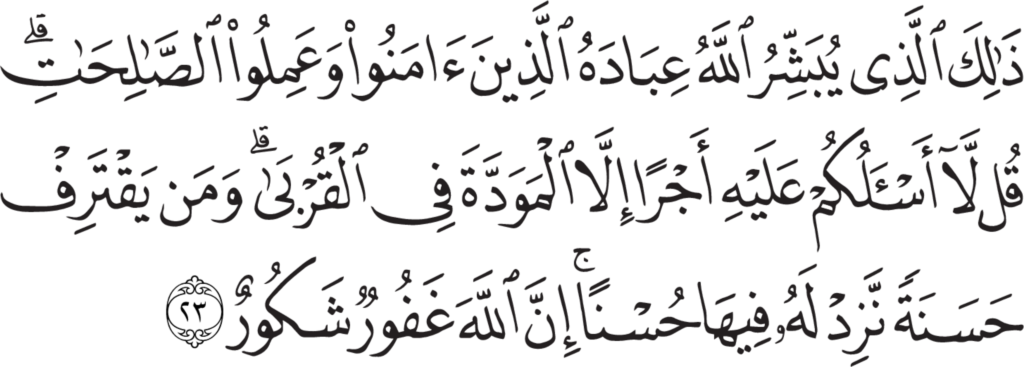 ذَٰلِكَ ٱلَّذِى يُبَشِّرُ ٱللَّهُ عِبَادَهُ ٱلَّذِينَ ءَامَنُوا۟ وَعَمِلُوا۟ ٱلصَّـٰلِحَـٰتِ ۗ
قُل لَّآ أَسْـَٔلُكُمْ عَلَيْهِ أَجْرًا إِلَّا ٱلْمَوَدَّةَ فِى ٱلْقُرْبَىٰ ۗ وَمَن يَقْتَرِفْ
حَسَنَةً نَّزِدْ لَهُۥ فِيهَا حُسْنًا ۚ إِنَّ ٱللَّهَ غَفُورٌ شَكُورٌ ٢٣